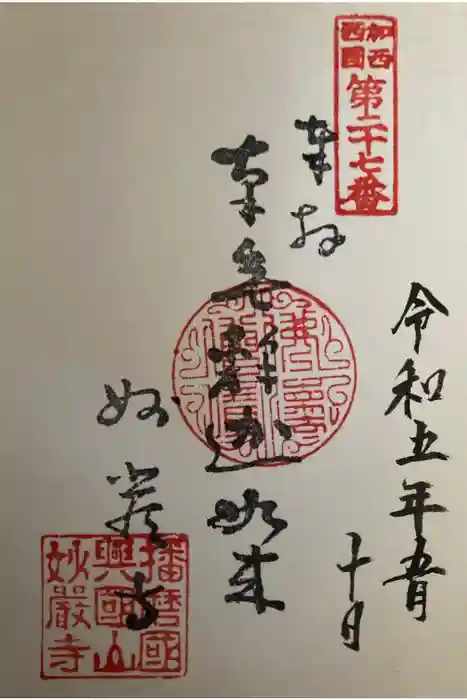 加西
西國
第二十七番
奉拝
令和五年五月
十日
本尊釋迦如来
妙嚴寺
播磨國
興國山
妙嚴寺